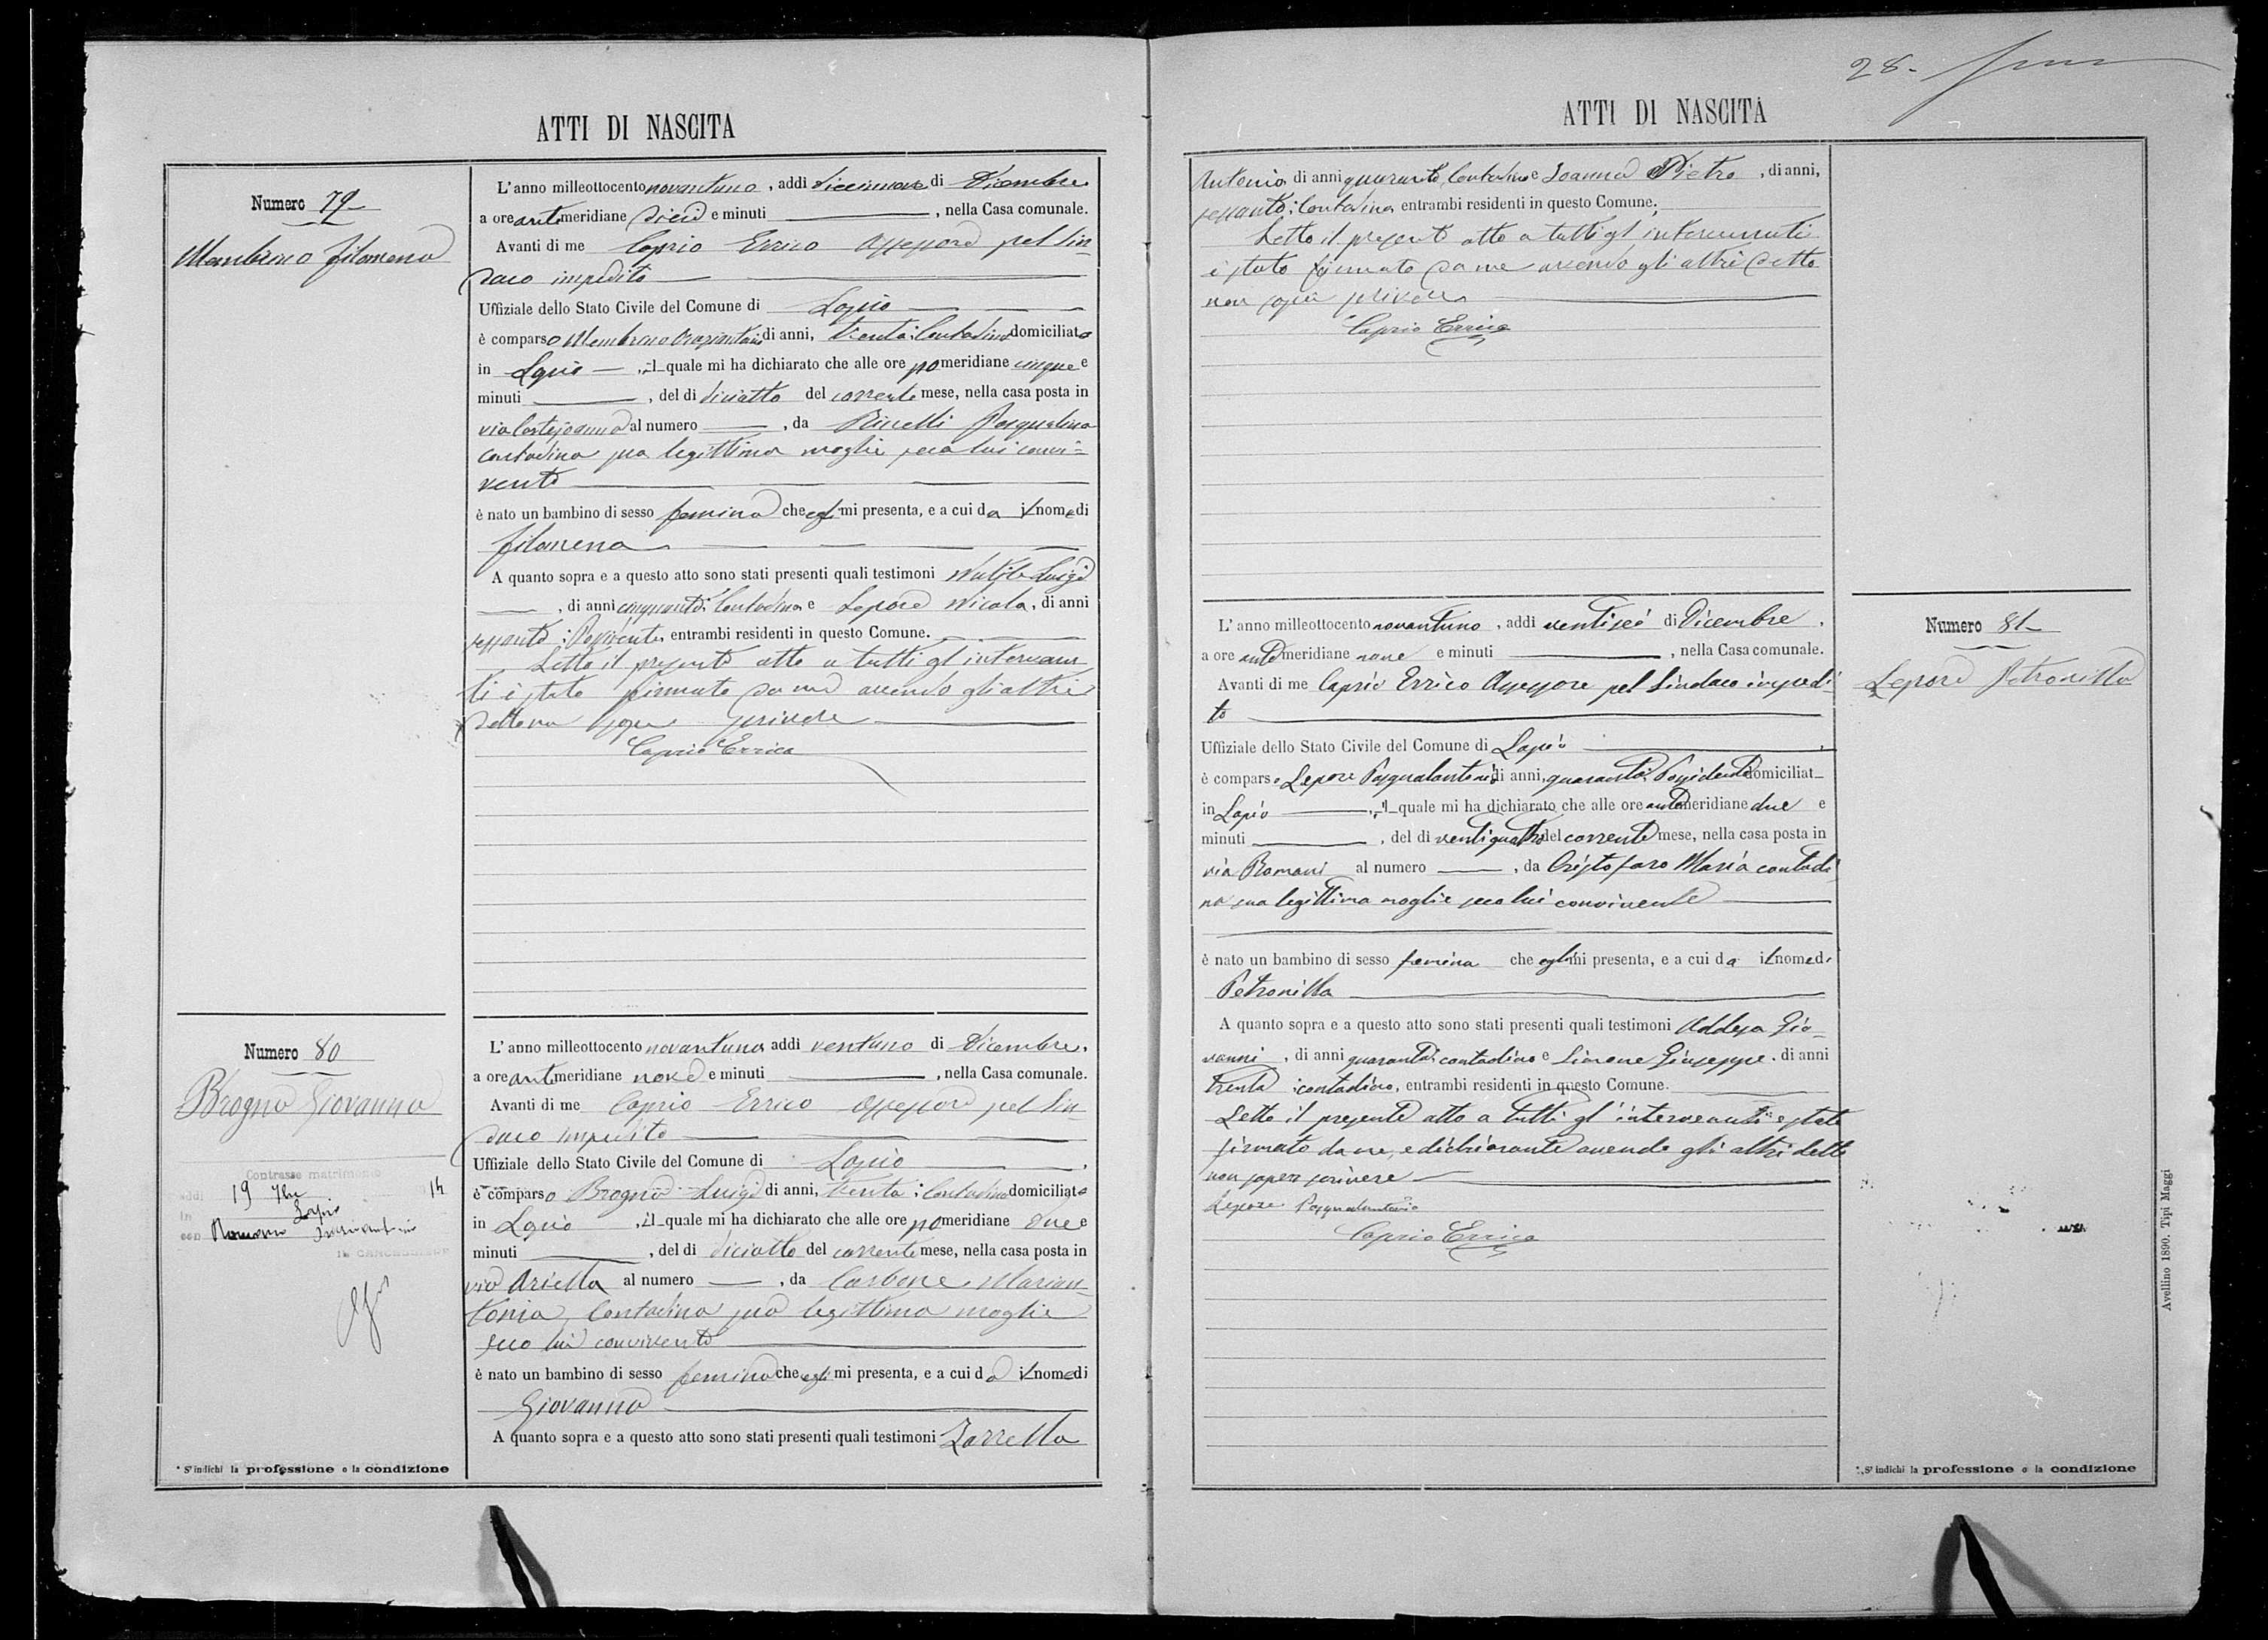 ATTI DI NASCITA
Numero 79
Membrino Filomena
L'anno milleottocento novantuno, addì diecinnove di Dicembre
a ore antimeridiane dieci e minuti , nella Casa comunale.
Avanti di me Caprio Errico Assessore pel Sin-
daco impedito
Uffiziale dello Stato Civile del Comune di Lapio
è comparso Membrino di anni, trenta; Contadino domiciliato
in Lapio , il quale mi ha dichiarato che alle ore pomeridiane cinque e
minuti , del dì diciotto del corrente mese, nella casa posta in
via al numero , da Pasqualina
contadina sua legittima moglie seco lui convi-
vente
è nato un bambino di sesso femina che egli mi presenta, e a cui da il nome di
Filomena
A quanto sopra e a questo atto sono stati presenti quali testimoni Luigi
, di anni cinquanta; Contadino e Lepore Nicola, di anni
sessanta; Possidente, entrambi residenti in questo Comune.
Letto il presente atto a tutti gl'intervenu
ti è stato firmato da me avendo gli altri
detto non sapere scrivere
Caprio Errico
Numero 80
Brogna Giovanna
Contrasse matrimonio
addì 19 7bre 14
in Lapio
con Romano
L'anno milleottocento novantuno, addì ventuno di Dicembre,
a ore antimeridiane nove e minuti , nella Casa comunale.
Avanti di me Caprio Errico Assessore pel Sin-
daco impedito
Uffiziale dello Stato Civile del Comune di Lapio
è comparso Brogna Luigi di anni, trenta; Contadino domiciliato
in Lapio , il quale mi ha dichiarato che alle ore pomeridiane due e
minuti , del dì diciotto del corrente mese, nella casa posta in
via Ariella al numero , da Carbone Marian-
tonia, Contadina sua legittima moglie
seco lui convivente
è nato un bambino di sesso femina che egli mi presenta, e a cui dà il nome di
Giovanna
A quanto sopra e a questo atto sono stati presenti quali testimoni Zarrella
* S'indichi la professione o la condizione
28.
ATTI DI NASCITA
Antonio, di anni quaranta, Contadino e Ioanna Pietro, di anni,
sessanta; Contadino, entrambi residenti in questo Comune.
Letto il presente atto a tutti gl'intervenuti
è stato firmato da me avendo gli altri detto
non saper scrivere
Caprio Errico
L'anno milleottocento novantuno, addì ventisei di Dicembre,
a ore antimeridiane nove e minuti , nella Casa comunale.
Avanti di me Caprio Errico Assessore pel Sindaco impedi-
to
Uffiziale dello Stato Civile del Comune di Lapio
è comparso Lepore Pasqualantonio di anni, quaranta; Possidente domiciliat
in Lapio , il quale mi ha dichiarato che alle ore antimeridiane due e
minuti , del dì ventiquattro del corrente mese, nella casa posta in
via Romani al numero , da Cristofaro Maria contadi
na sua legittima moglie seco lui convivente
è nato un bambino di sesso femina che egli mi presenta, e a cui da il nome di
Petronilla
A quanto sopra e a questo atto sono stati presenti quali testimoni Addesa Gio-
vanni, di anni quaranta; contadino e Simone Giuseppe, di anni
trenta; contadino, entrambi residenti in questo Comune.
Letto il presente atto a tutti gl'intervenuti è stato
firmato da me, e dichiarante avendo gli altri detto
non saper scrivere
Lepore Pasqualantonio
Caprio Errico
Numero 81
Lepore Petronilla
Avellino 1890. Tipi Maggi
* S'indichi la professione o la condizione